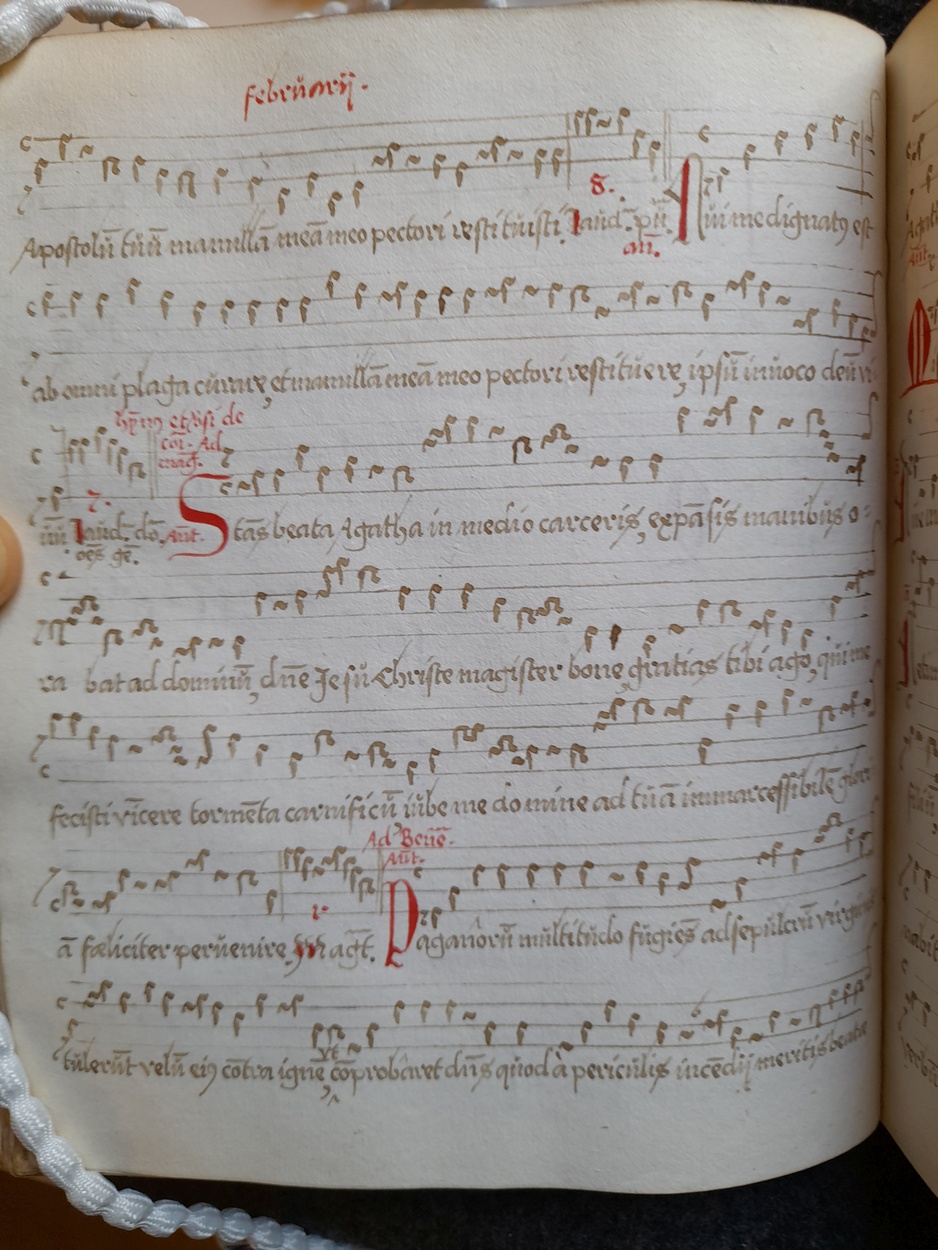 februarij.
Apostolū tuū mamillā meā meo pectori restituisti. Laud. pū. Qui me dignatꝯ est
8.
añ.
ab omni plaga curare, et mamillā meā meo pectori restituere, ipsū inuoco deū vi
hȳm et v̄si de
cōi. Ad
mag̃.
7.
uū Laud. dō. Ant. Stās beata Agatha in medio carceris, expāsis manibus o-
oēs gē.
ra bat ad dominū, dn̄e Jesu Christe magister bone, gratias tibi ago, qui me
fecisti vīcere tormēta carnificū iube me domine ad tuā immarcessibilē glori
Ad Benē.
Ant.
ā fœliciter peruenire. Magt̄. Paganorū multitudo fugiēs ad sepulcrū virginis
tulerūt velū eiꝯ cōtra ignē, cōprobaret dn̄s quod à periculis incēdij meritis beatæ
vt